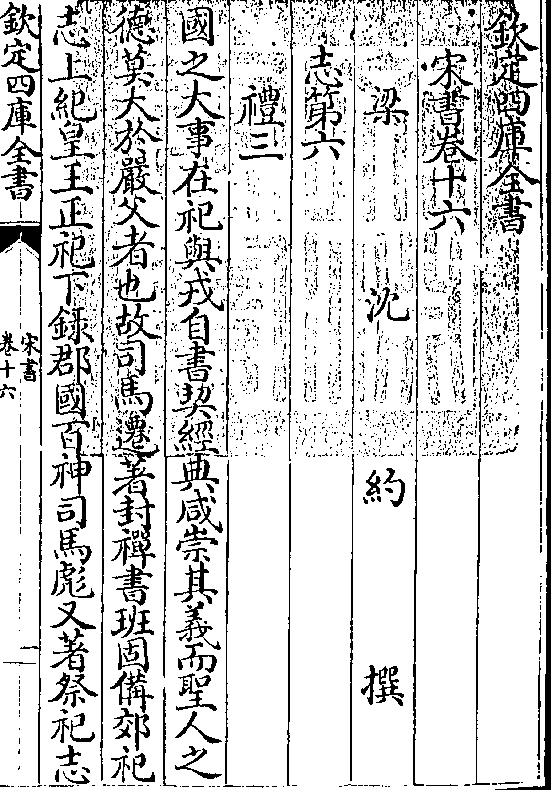 欽定四庫全書
宋書卷十六
梁沈約撰
志第六
禮三
國之大事在祀與戎自書契經典咸崇其義而聖人之
德莫大於嚴父者也故司馬遷著封禪書班固備郊祀
志上紀皇王正祀下錄郡國百神司馬彪又著祭祀志
欽定四庫全書
宋書
卷十六
一